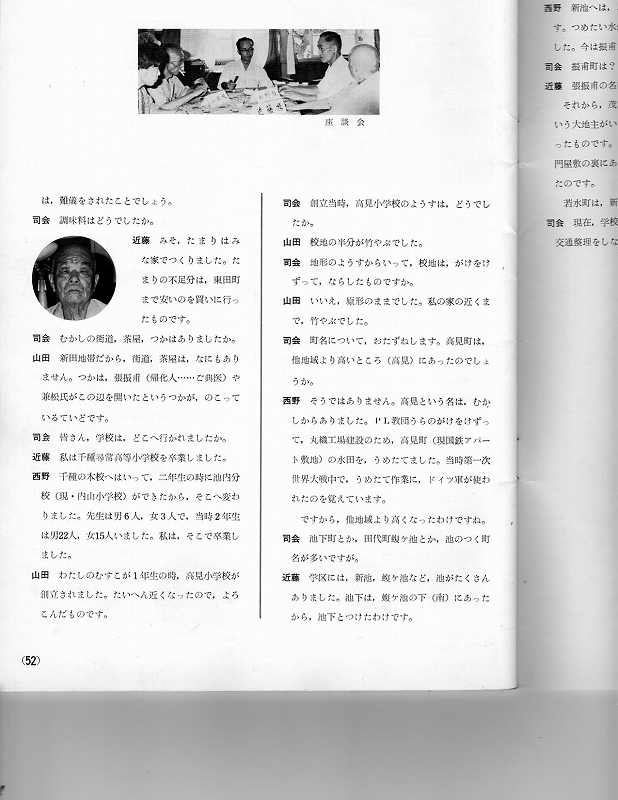 座談会
は，難儀をされたことでしょう。
司会　調味料はどうでしたか。
近藤　みそ，たまりはみ
な家でつくりました。た
まりの不足分は，東田町
まで安いのを買いに行っ
たものです。
司会　むかしの街道，茶屋，つかはありましたか。
山田　新田地帯だから，街道，茶屋は，なにもあり
ません。つかは，張振甫（帰化人……ご典医）や
兼松氏がこの辺を開いたというつかが，のこって
いるていどです。
司会　皆さん，学校は，どこへ行かれましたか。
近藤　私は千種尋常高等小学校を卒業しました。
西野　千種の本校へはいって，二年生の時に池内分
校（現・内山小学校）ができたから，そこへ変わ
りました。先生は男６人，女３人で，当時２年生
は男22人，女15人いました。私は，そこで卒業し
ました。
山田　わたしのむすこが１年生の時，高見小学校が
創立されました。たいへん近くなったので，よろ
こんだものです。
(52)
司会　創立当時，高見小学校のようすは，どうでし
たか。
山田　校地の半分が竹やぶでした。
司会　地形のようすからいって，校地は，がけをけ
ずって，ならしたものですか。
山田　いいえ，原形のままでした。私の家の近くま
で，竹やぶでした。
司会　町名について，おたずねします。高見町は，
他地域より高いところ（高見）にあったのでしょ
うか。
西野　そうではありません。高見という名は，むか
しからありました。ＰＬ教団うらのがけをけずっ
て，丸織工場建設のため，高見町（現国鉄アパー
ト敷地）の水田を，うめたてました。当時第一次
世界大戦中で，うめたて作業に，ドイツ軍が使わ
れたのを覚えています。
ですから，他地域より高くなったわけですね。
司会　池下町とか，田代町蝮ケ池とか，池のつく町
名が多いですが。
近藤　学区には，新池，蝮ケ池など，池がたくさん
ありました。池下は，蝮ケ池の下（南）にあった
から，池下とつけたわけです。
西野　新池へは，
す。つめたい水
した。今は振甫
司会　振甫町は？
近藤　張振甫の名
それから，茂
いう大地主がい
ったものです。
門屋敷の裏にあ
たのです。
若水町は，新
司会　現在，学校
交通整理をしな